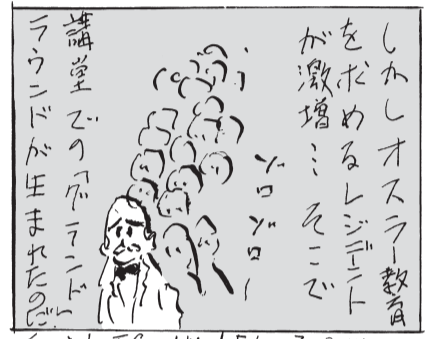 しかしオスラー教育
を求めるレジデント
が激増…そこで
ゾロ
ゾロ〜
講堂での「グランド
ラウンドが生まれたのだ!